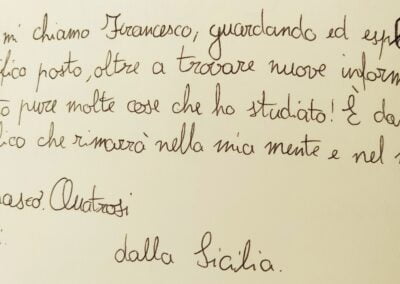 mi chiamo Francesco, guardando ed esp
fico posto, oltre a trovare nuove inform
to pure molte cose che ho studiato! È da
ico che rimarrà nella mia mente e nel
dalla Sicilia.